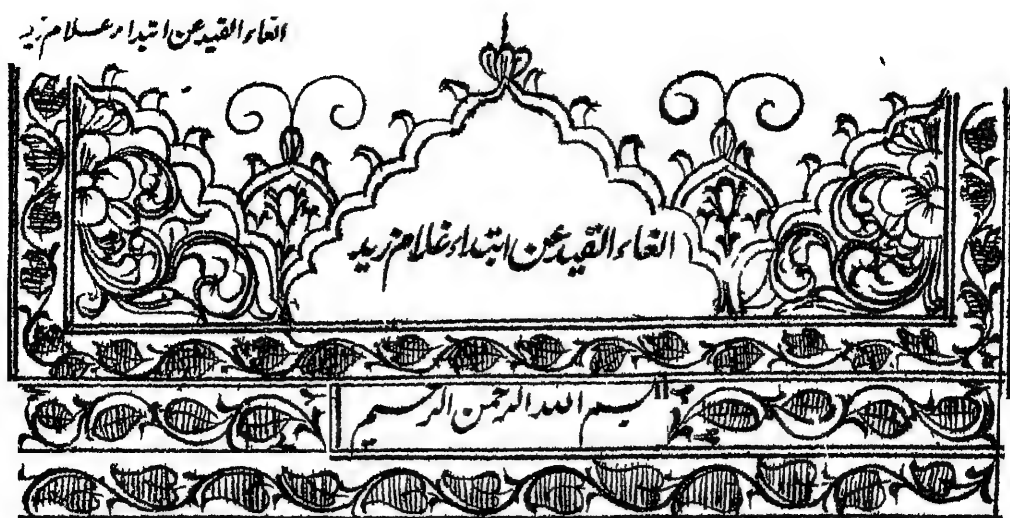 الغاء القید عن ابتداء غلام زید
الغاء القید عن ابتداء غلام زید
بسم الله الرحمن الرحیم